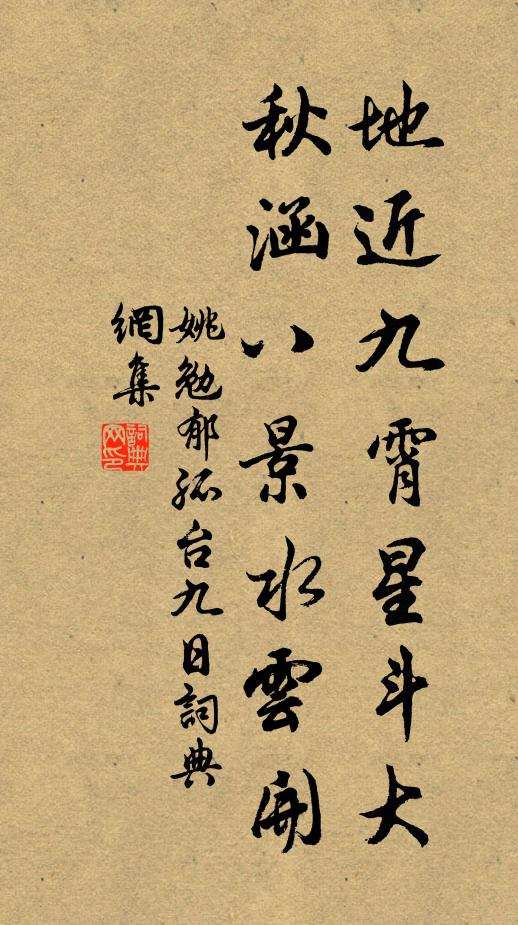 地近九霄星斗大
秋涵八景水雲開
姚勉郁孤台九日詞典
網集
詞典网印